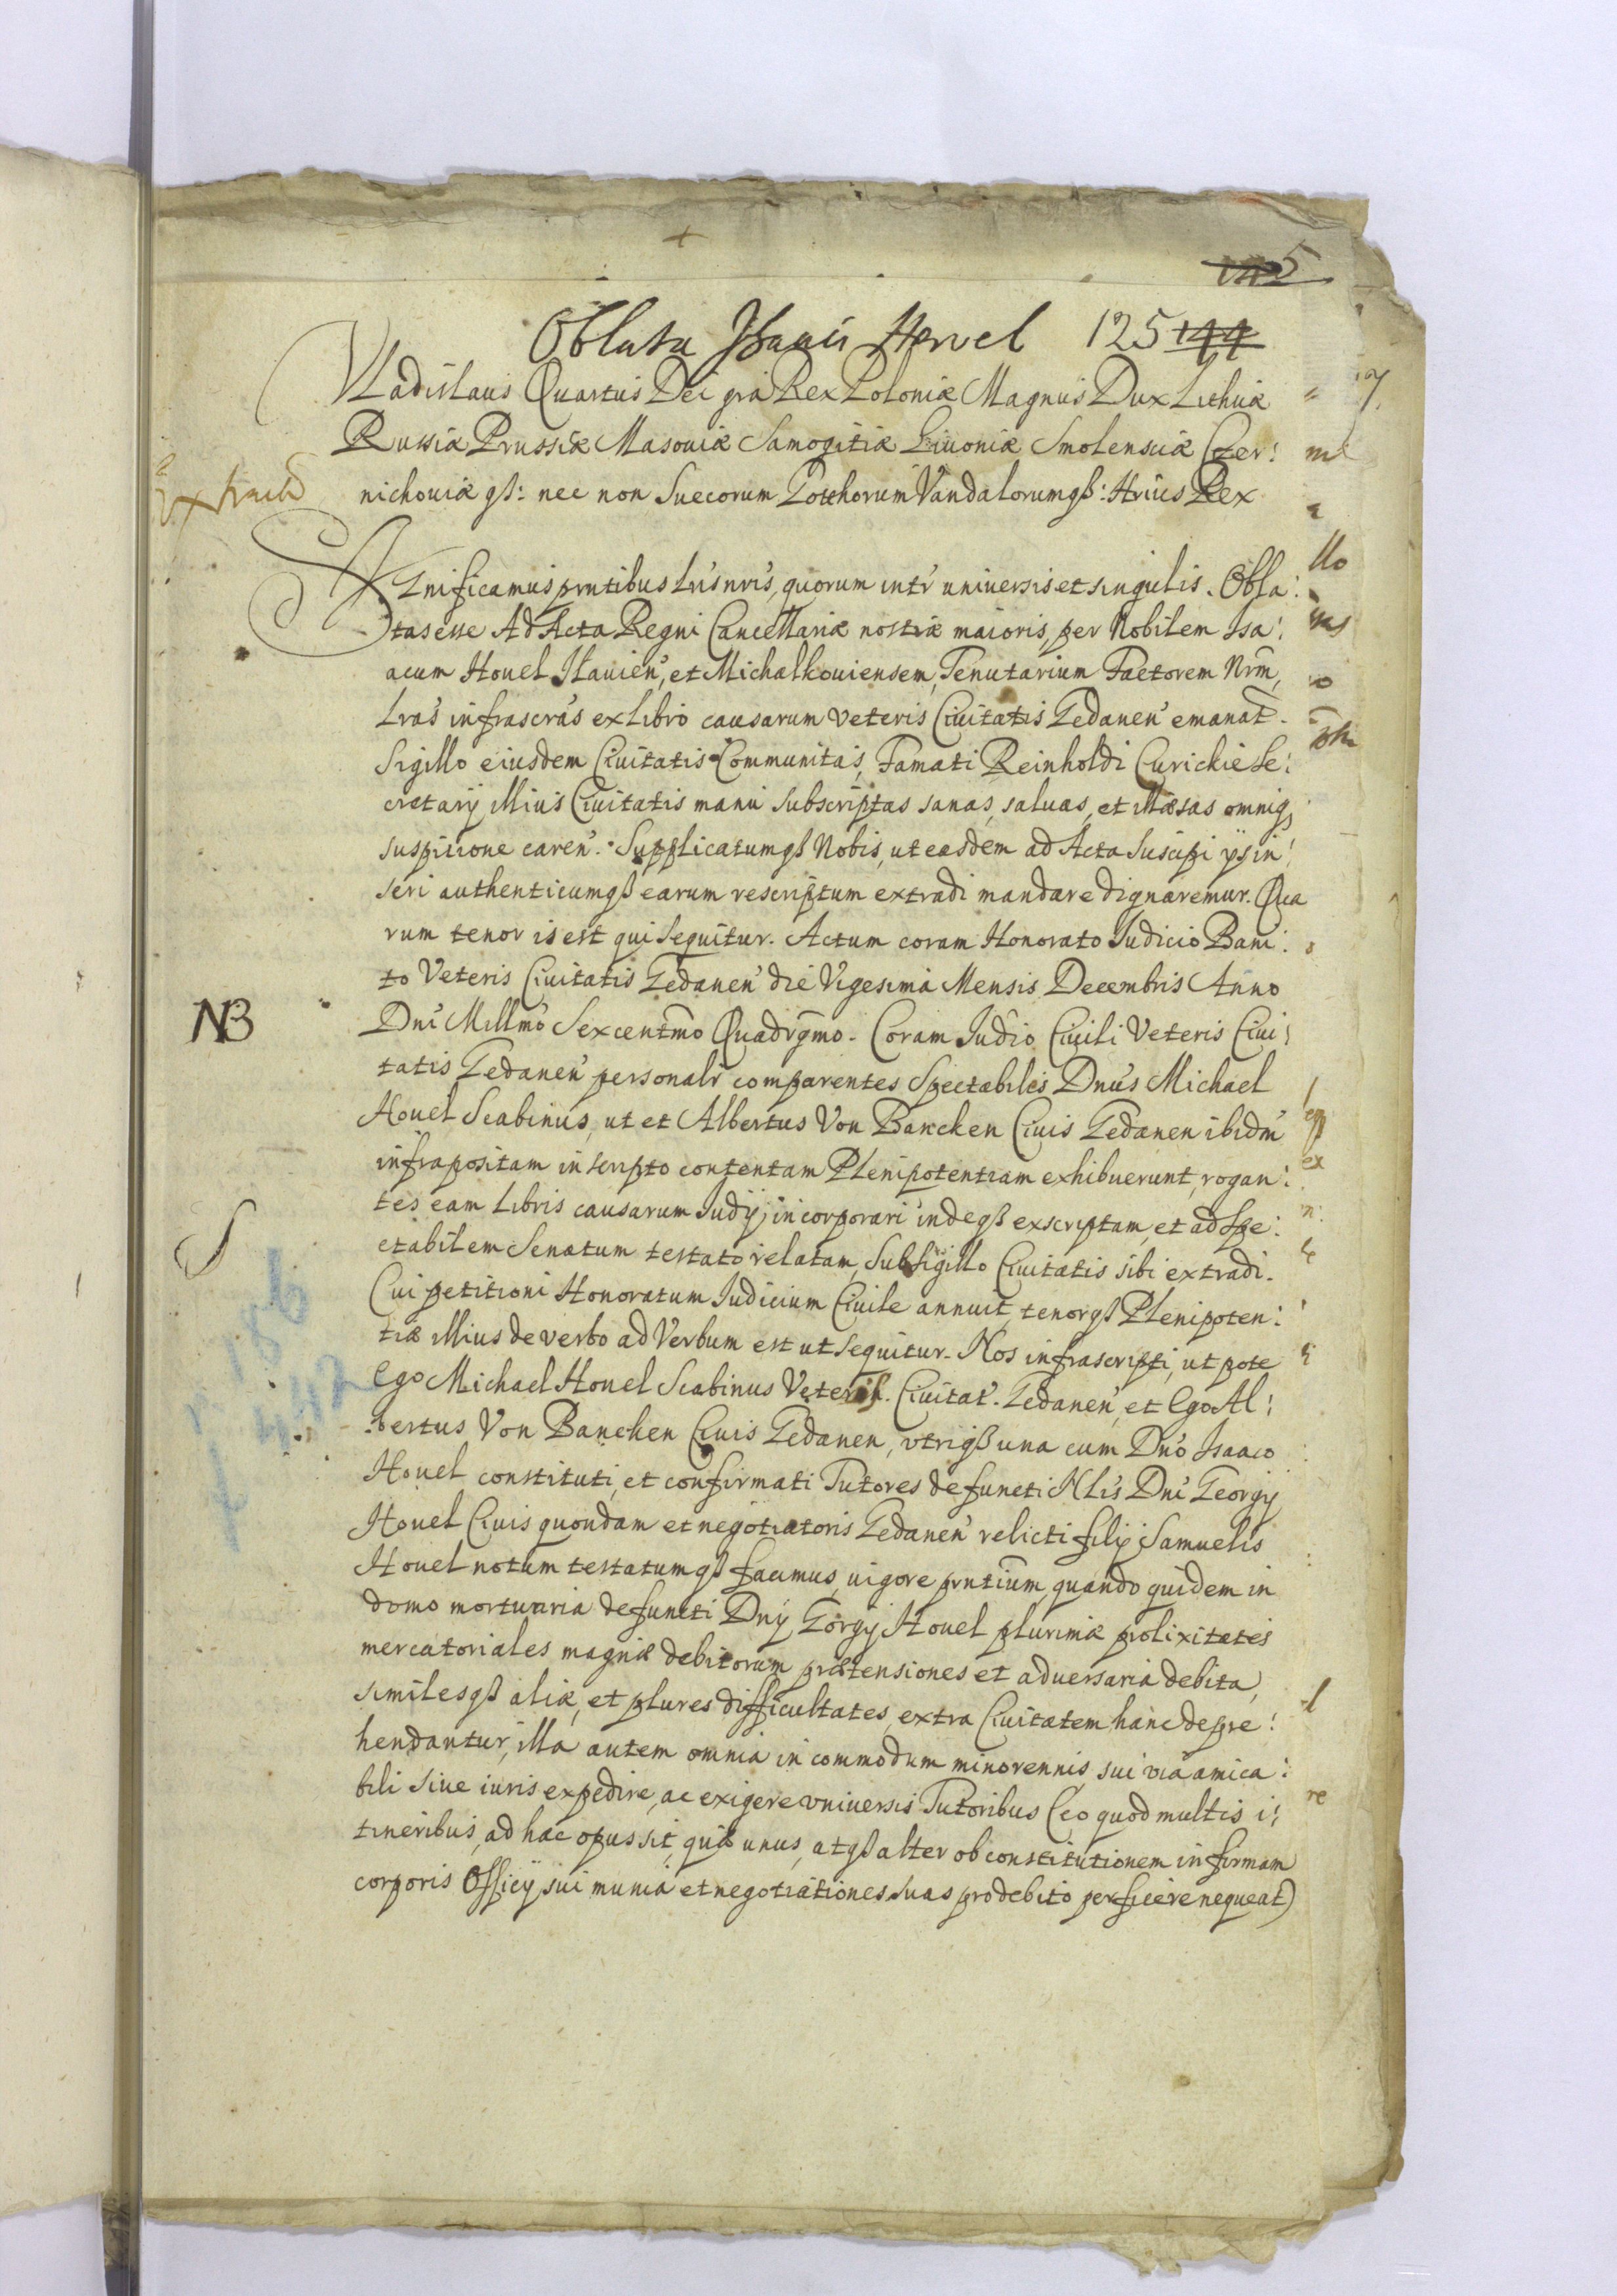 5
Oblata Isaaci Hewel 125 144
Vladislaus Quartus Dei gra Rex Poloniæ Magnus Dux Lithuæ
Russiæ Prussiæ Masouiæ Samogitiæ Liuoniæ Smolensciæ Czer:
nichouiæ qß: nec non Suecorum Gotthorum Vandalorumqß: Hrius Rex
Extract
Significamus prntibus Lris nris, quorum intr uniuersis et singulis. Obla:
tas esse Ad Acta Regni Cancellariæ nostræ maioris, per Nobilem Isa:
acum Houel Ilauien, et Michalkouiensem, Tenutarium Factorem Nrm,
Lras infrascras ex Libro causarum Veteris Ciuitatis Gedanen emanat.
Sigillo eiusdem Ciuitatis Communitas, Famati Reinholdi Curickie Se:
cretarij illius Ciuitatis manu subscriptas sanas, saluas, et illæsas omniq
suspicione caren. Supplicatumqß Nobis, ut easdem ad Acta suscipi ysin:
seri authenticumqß earum rescriptum extradi mandare dignaremur. Qua
rum tenor is est qui sequitur. Actum coram Honorato Iudicio Bani:
to Veteris Ciuitatis Gedanen die Vigesima Mensis Decembris Anno
NB
Dni Millmo Sexcentmo Quadrgmo. Coram Iudio Ciuili Veteris Ciui:
tatis Gedanen personalr comparentes Spectabiles Dnus Michael
Houel Scabinus, ut et Albertus Von Bancken Ciuis Gedanen ibidm
infrapositam in scripto contentam Plenipotentiam exhibuerunt, rogan:
tes eam Libris causarum Iudij, incorporari indeqß exscriptam, et ad Spe:
ctabilem Senatum testato relatam, Sub Sigillo Ciuitatis sibi extradi.
Cui petitioni Honoratum Iudicium Ciuile annuit, tenorqß Plenipoten:
tiæ illius de verbo ad Verbum est ut sequitur. Nos infrascripti, ut pote
Ego Michael Houel Scabinus Veteris. Ciuitat. Gedanen, et Ego Al:
bertus Von Bancken Ciuis Gedanen, vtriqß una cum Dno Isaaco
Houel constituti, et confirmati Tutores defuncti Nlis Dni Georgij
Houel Ciuis quondam et negotiatoris Gedanen relicti filij Samuelis
Houel notum testatumqß facimus, uigore prntium, quando quidem in
domo mortuaria defuncti Dnij Gorgij Houel plurimæ prolixitates
mercatoriales magnæ debitorum prætensiones et aduersaria debita,
similesqß aliæ, et plures difficultates, extra Ciuitatem hanc depre:
hendantur, illa autem omnia in commodum minorennis, sui via amica:
bili siue iuris expedire, ac exigere vniuersis Tutoribus (eo quod multis i:
tineribus, ad hæc opus sit, quiæ unus, atqß alter ob constitutionem infirmam
corporis Officij sui munia et negotiationes suas pro debito perficere nequeat)